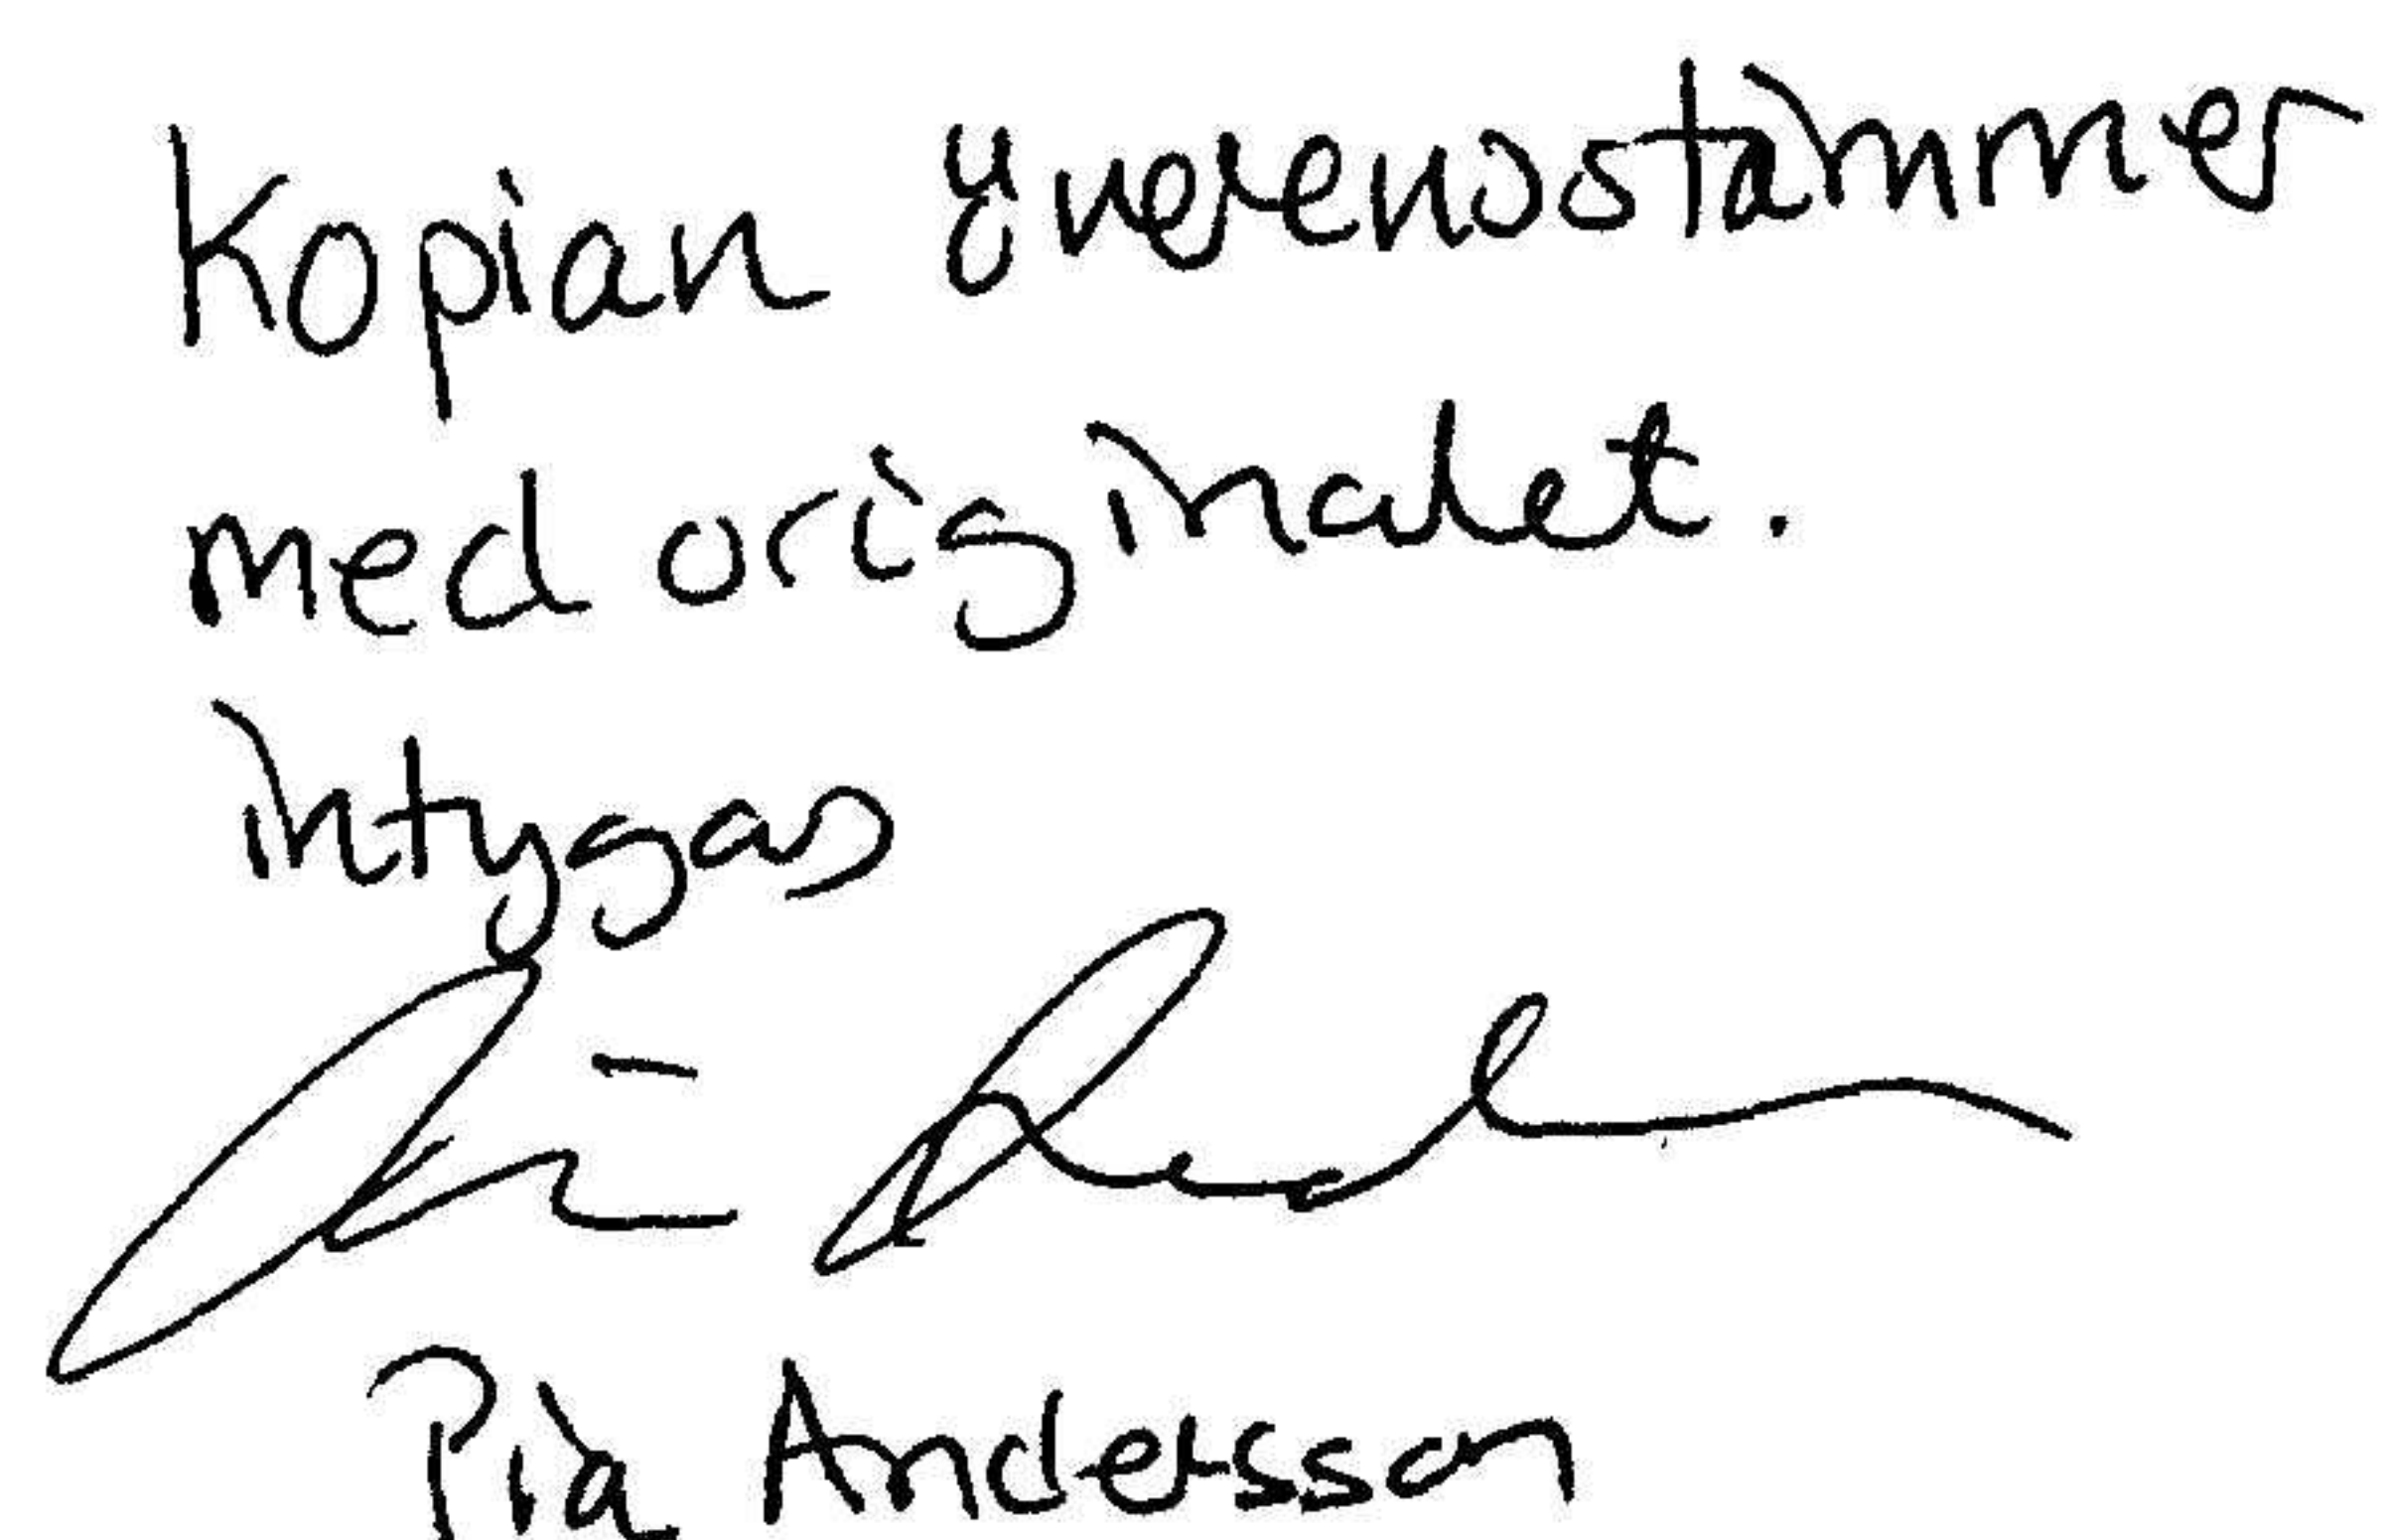 Kopian överensstämmer
med originalet.
intygas
Pia Andersson